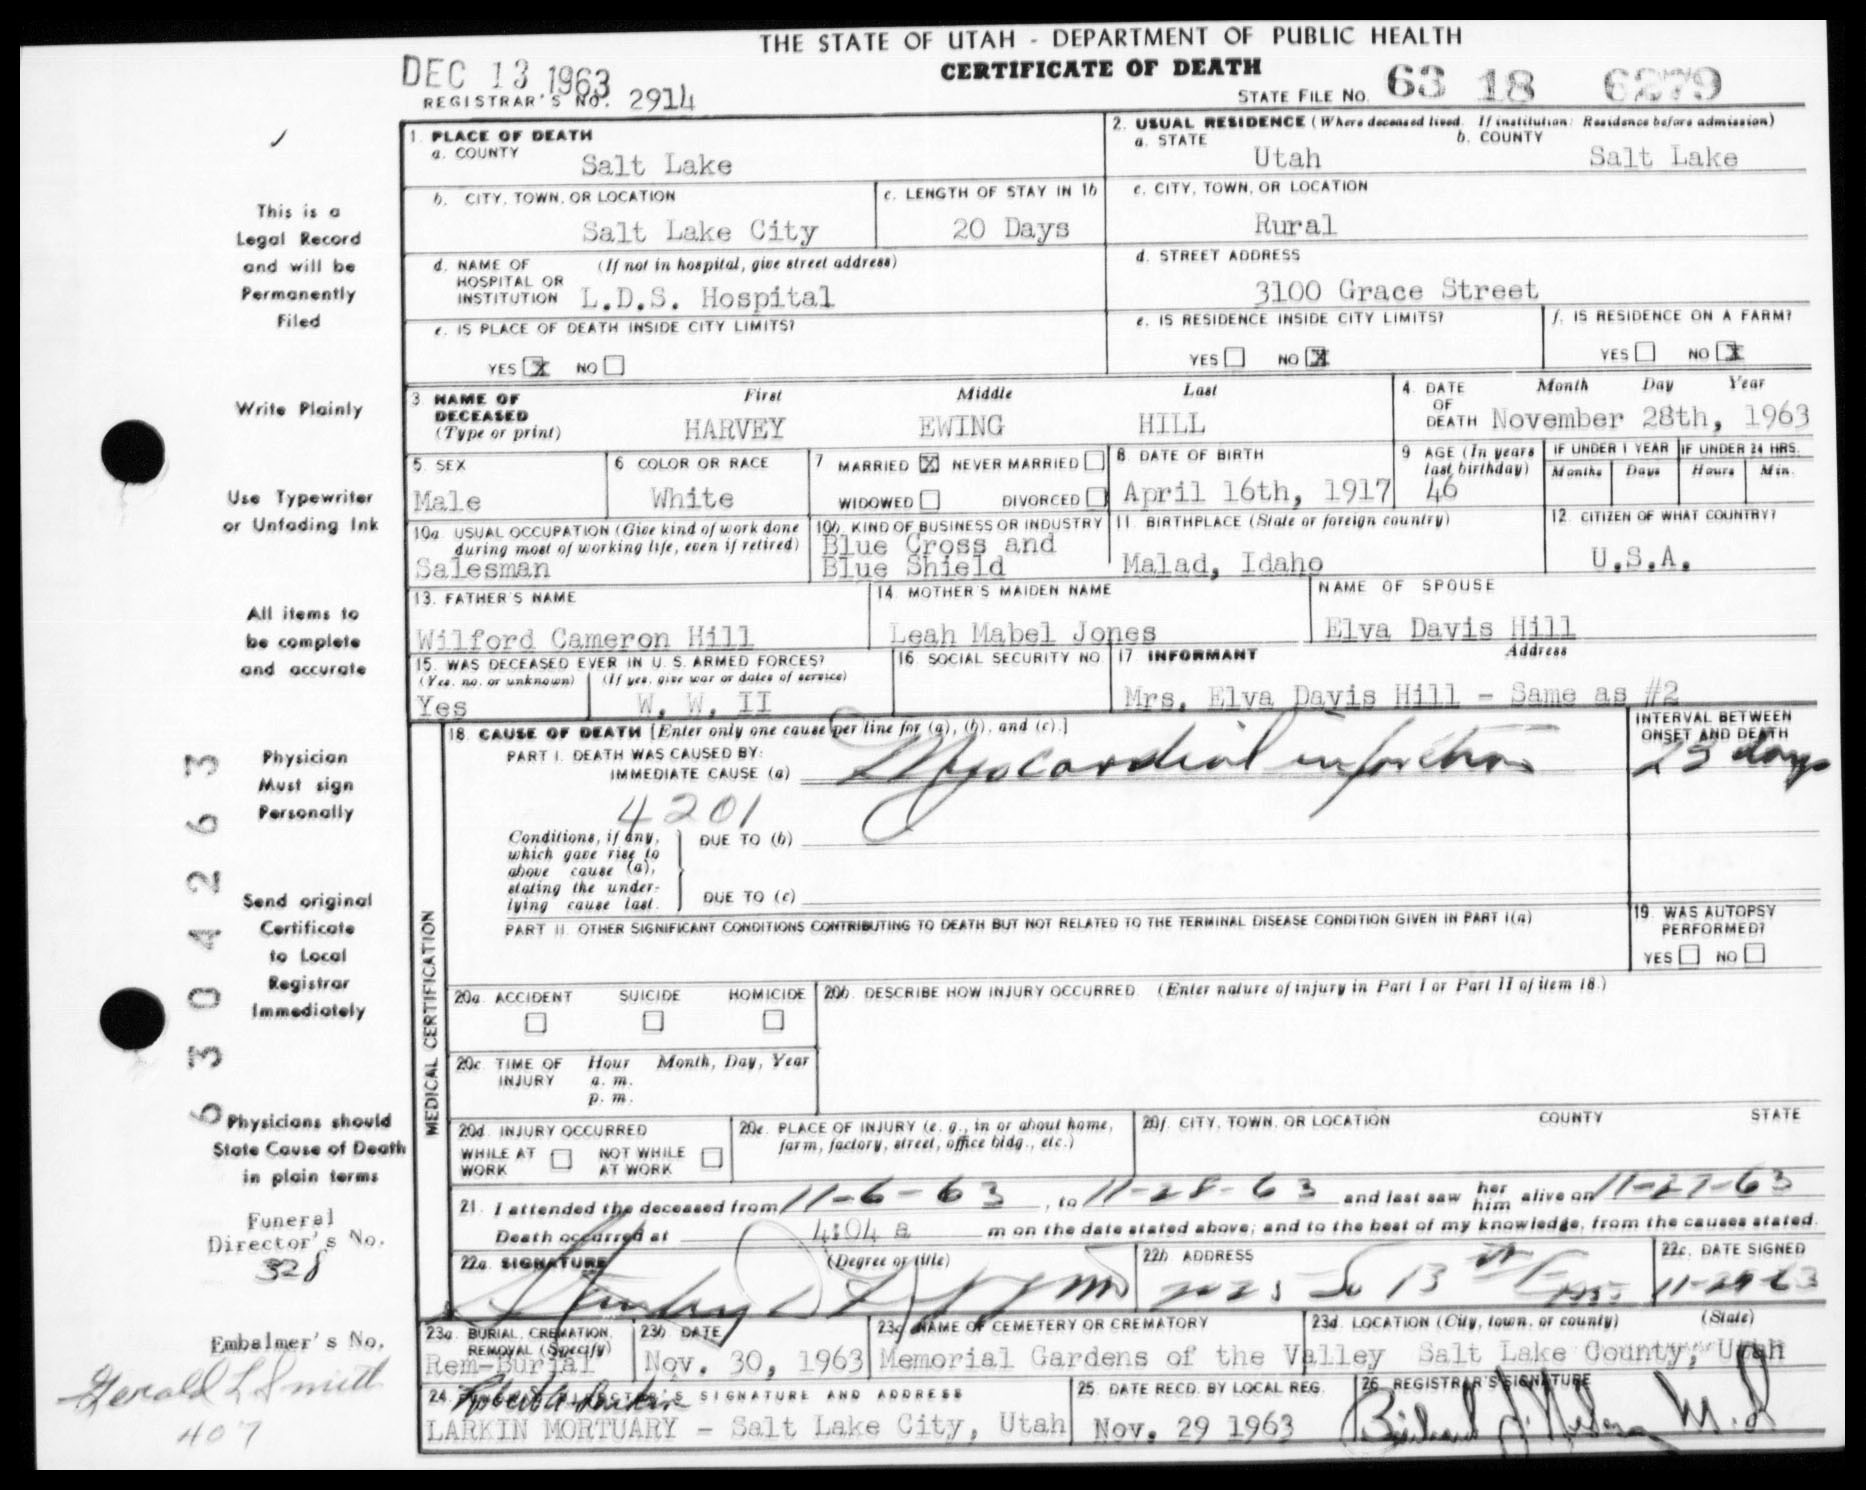 THE STATE OF UTAH - DEPARTMENT OF PUBLIC HEALTH
CERTIFICATE OF DEATH
DEC 13 1963
REGISTRAR'S NO. 2914
STATE FILE NO. 63 18 6279
This is a
Legal Record
and will be
Permanently
Filed
Write Plainly
Use Typewriter
or Unfading Ink
All items to
be complete
and accurate
Physician
Must sign
Personally
Send original
Certificate
to Local
Registrar
Immediately
Physicians should
State Cause of Death
in plain terms
Funeral
Director's No.
328
Embalmer's No.
Gerald L Smith
407
6304263
1. PLACE OF DEATH
a. COUNTY
Salt Lake
2. USUAL RESIDENCE (Where deceased lived. If institution: Residence before admission)
a. STATE
Utah
b. COUNTY
Salt Lake
b. CITY, TOWN, OR LOCATION
Salt Lake City
c. LENGTH OF STAY IN 1b
20 Days
c. CITY, TOWN, OR LOCATION
Rural
d. NAME OF HOSPITAL OR INSTITUTION (If not in hospital, give street address)
L.D.S. Hospital
d. STREET ADDRESS
3100 Grace Street
e. IS PLACE OF DEATH INSIDE CITY LIMITS?
YES X NO
e. IS RESIDENCE INSIDE CITY LIMITS?
YES NO X
f. IS RESIDENCE ON A FARM?
YES NO X
3. NAME OF DECEASED (Type or print)
First Middle Last
HARVEY EWING HILL
4. DATE OF DEATH Month Day Year
November 28th, 1963
5. SEX
Male
6 COLOR OR RACE
White
7 MARRIED X NEVER MARRIED
WIDOWED DIVORCED
8. DATE OF BIRTH
April 16th, 1917
9 AGE (In years last birthday)
46
IF UNDER 1 YEAR
Months Days
IF UNDER 24 HRS.
Hours Min.
10a. USUAL OCCUPATION (Give kind of work done during most of working life, even if retired)
Salesman
10b. KIND OF BUSINESS OR INDUSTRY
Blue Cross and
Blue Shield
11. BIRTHPLACE (State or foreign country)
Malad, Idaho
12. CITIZEN OF WHAT COUNTRY?
U.S.A.
13. FATHER'S NAME
Wilford Cameron Hill
14. MOTHER'S MAIDEN NAME
Leah Mabel Jones
NAME OF SPOUSE
Elva Davis Hill
15. WAS DECEASED EVER IN U. S. ARMED FORCES?
(Yes, no, or unknown) (If yes, give war or dates of service)
Yes W. W. II
16. SOCIAL SECURITY NO.
17 INFORMANT Address
Mrs. Elva Davis Hill - Same as #2
MEDICAL CERTIFICATION
18. CAUSE OF DEATH [Enter only one cause per line for (a), (b), and (c).]
PART I. DEATH WAS CAUSED BY:
IMMEDIATE CAUSE (a) Myocardial infarction
INTERVAL BETWEEN ONSET AND DEATH
23 days
4201
Conditions, if any, which gave rise to above cause (a), stating the underlying cause last.
DUE TO (b)
DUE TO (c)
PART II. OTHER SIGNIFICANT CONDITIONS CONTRIBUTING TO DEATH BUT NOT RELATED TO THE TERMINAL DISEASE CONDITION GIVEN IN PART I(a)
19. WAS AUTOPSY PERFORMED?
YES NO
20a. ACCIDENT SUICIDE HOMICIDE
20b. DESCRIBE HOW INJURY OCCURRED. (Enter nature of injury in Part I or Part II of item 18.)
20c. TIME OF INJURY Hour Month, Day, Year
a. m.
p. m.
20d. INJURY OCCURRED
WHILE AT WORK NOT WHILE AT WORK
20e. PLACE OF INJURY (e. g., in or about home, farm, factory, street, office bldg., etc.)
20f. CITY, TOWN, OR LOCATION COUNTY STATE
21. I attended the deceased from 11-6-63, to 11-28-63 and last saw her him alive on 11-27-63
Death occurred at 4:04 a m on the date stated above; and to the best of my knowledge, from the causes stated.
22a. SIGNATURE (Degree or title)
22b. ADDRESS
2025 So 13th E
22c. DATE SIGNED
23a. BURIAL, CREMATION, REMOVAL (Specify)
Rem-Burial
23b. DATE
Nov. 30, 1963
23c. NAME OF CEMETERY OR CREMATORY
Memorial Gardens of the Valley
23d. LOCATION (City, town, or county) (State)
Salt Lake County, Utah
24. DIRECTOR'S SIGNATURE AND ADDRESS
LARKIN MORTUARY - Salt Lake City, Utah
25. DATE RECD. BY LOCAL REG.
Nov. 29 1963
26. REGISTRAR'S SIGNATURE